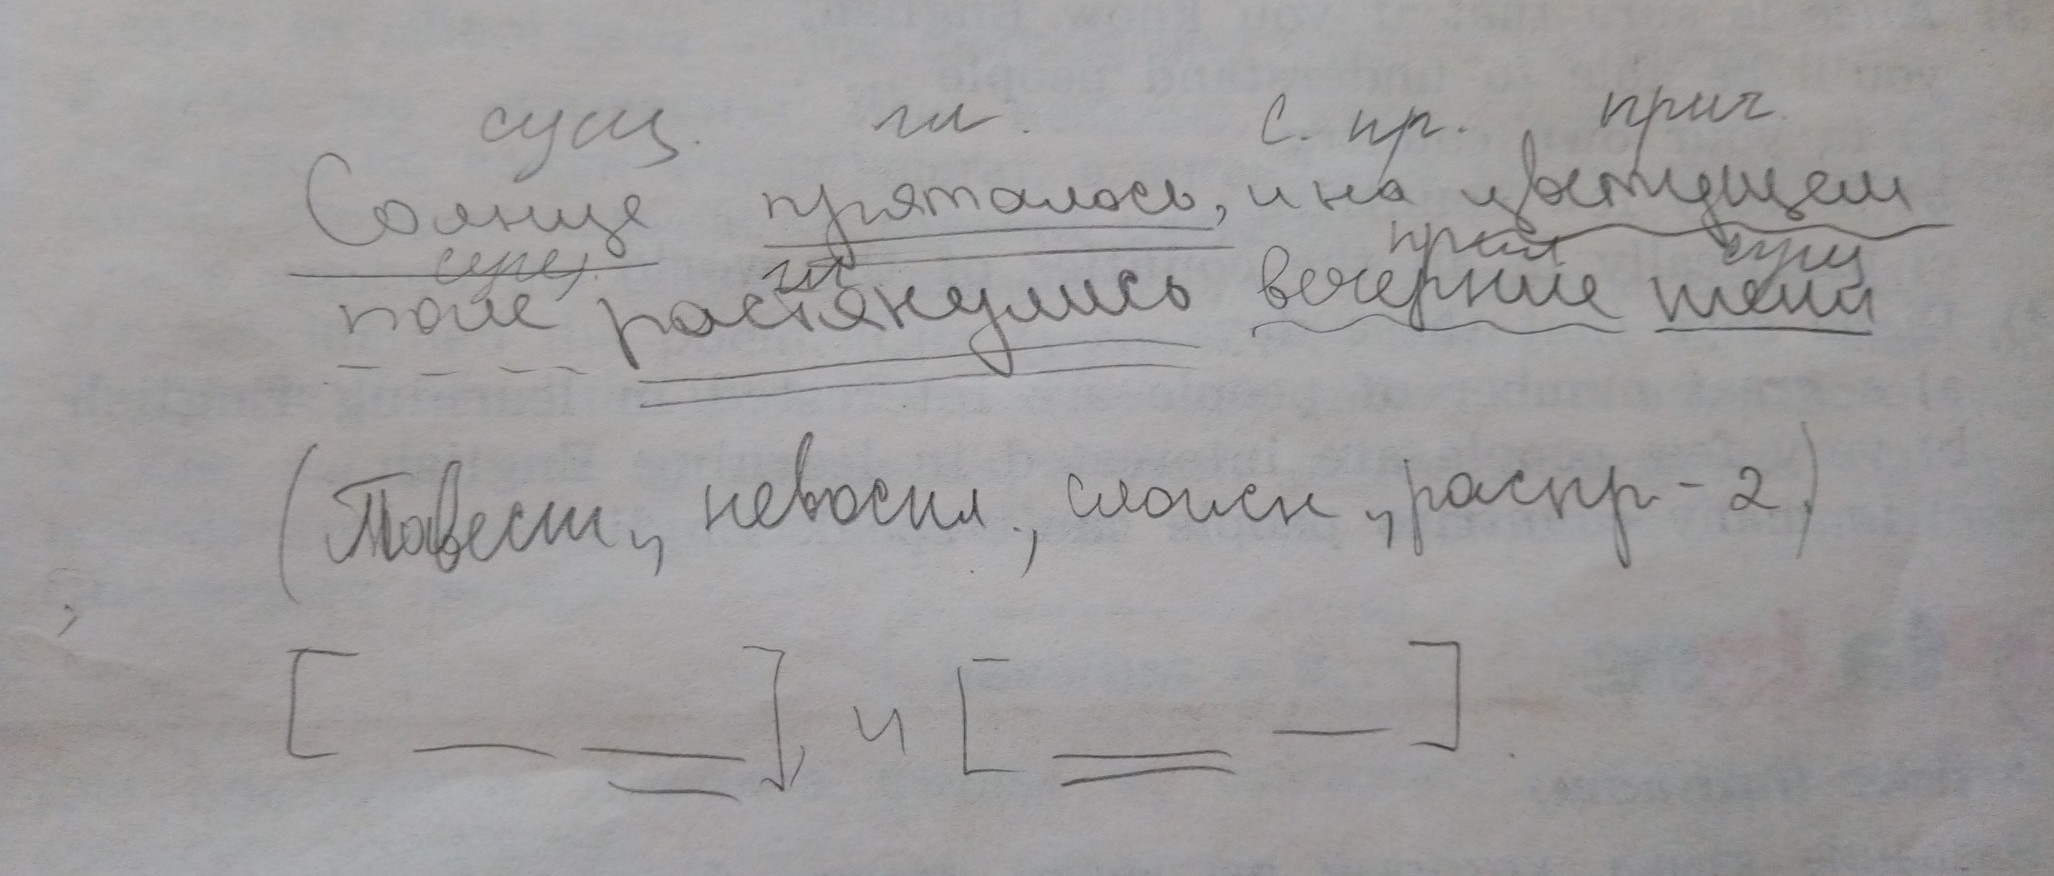 сущ. гл. с. пр. прич.
Солнце пряталось, и на цветущем
сущ. гл прил сущ
поле растянулись вечерние тени
(Повест., невоскл., сложн., распр - 2)
[ ], и [ ].